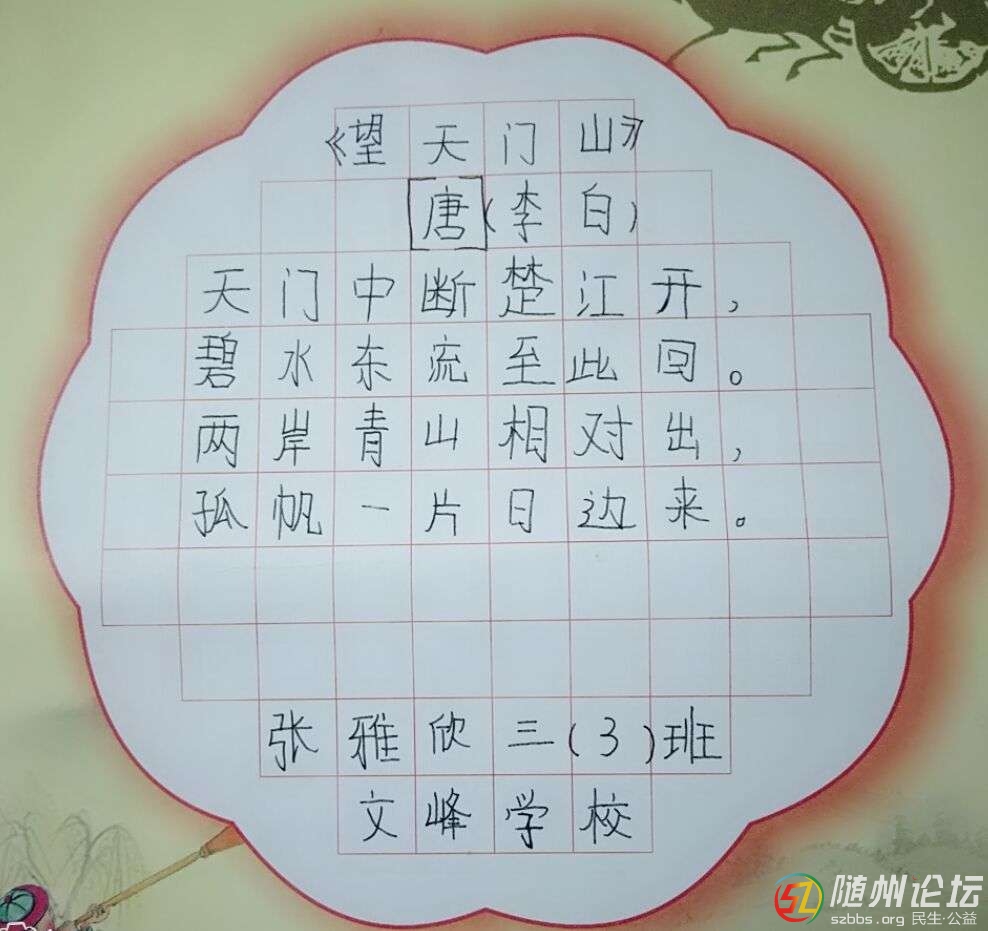 《望天门山》
[唐](李白)
天门中断楚江开，
碧水东流至此回。
两岸青山相对出，
孤帆一片日边来。
张雅欣三(3)班
文峰学校
随州论坛
szbbs.org 民生·公益